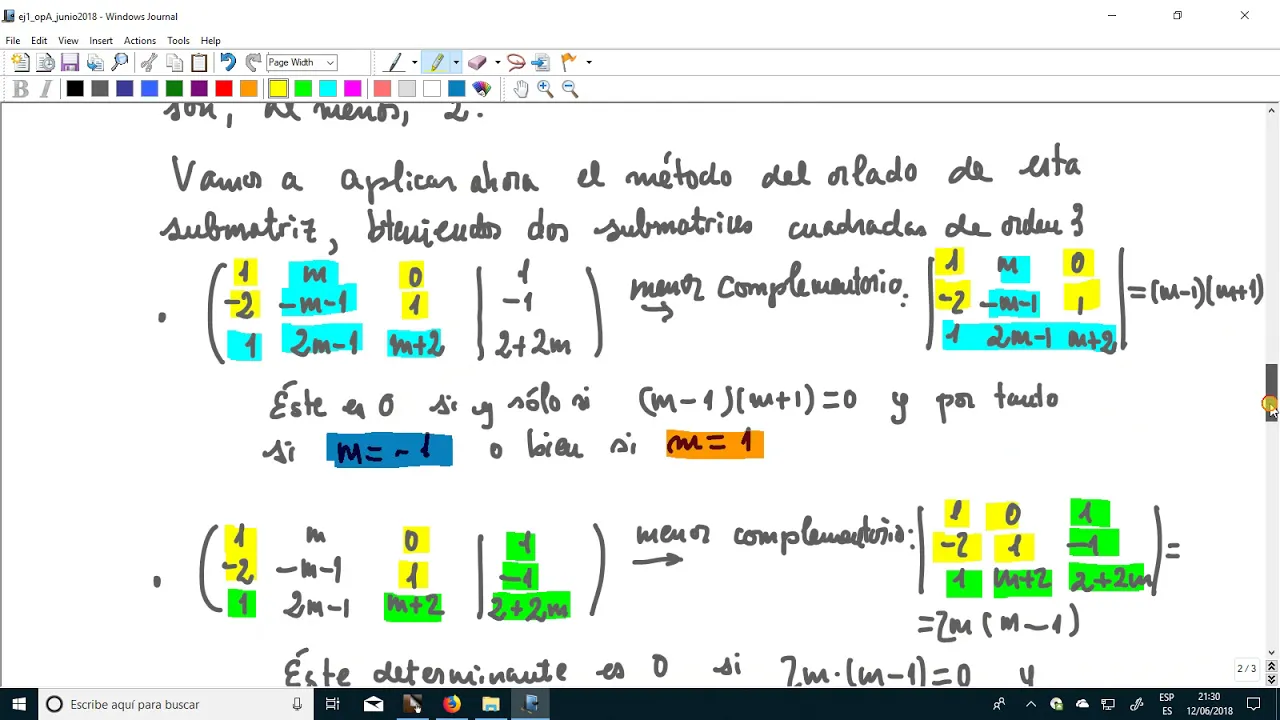 ej1_opA_junio2018 - Windows Journal
File Edit View Insert Actions Tools Help
Page Width
B I
son, de menos, 2.
Vamos a aplicar ahora el método del orlado de esta
submatriz, bteniendos dos submatrices cuadradas de orden 3
1 m 0 | 1
-2 -m-1 1 | -1
1 2m-1 m+2 | 2+2m
menor complementario:
→
1 m 0
-2 -m-1 1
1 2m-1 m+2
=(m-1)(m+1)
Éste es 0 si y sólo si (m-1)(m+1)=0 y por tanto
si m=-1 o bien si m=1
1 m 0 | 1
-2 -m-1 1 | -1
1 2m-1 m+2 | 2+2m
menor complementario:
→
1 0 1
-2 1 -1
1 m+2 2+2m
=
=2m(m-1)
Éste determinante es 0 si 2m·(m-1)=0 y
2 / 3
Escribe aquí para buscar
ESP
ES
21:30
12/06/2018